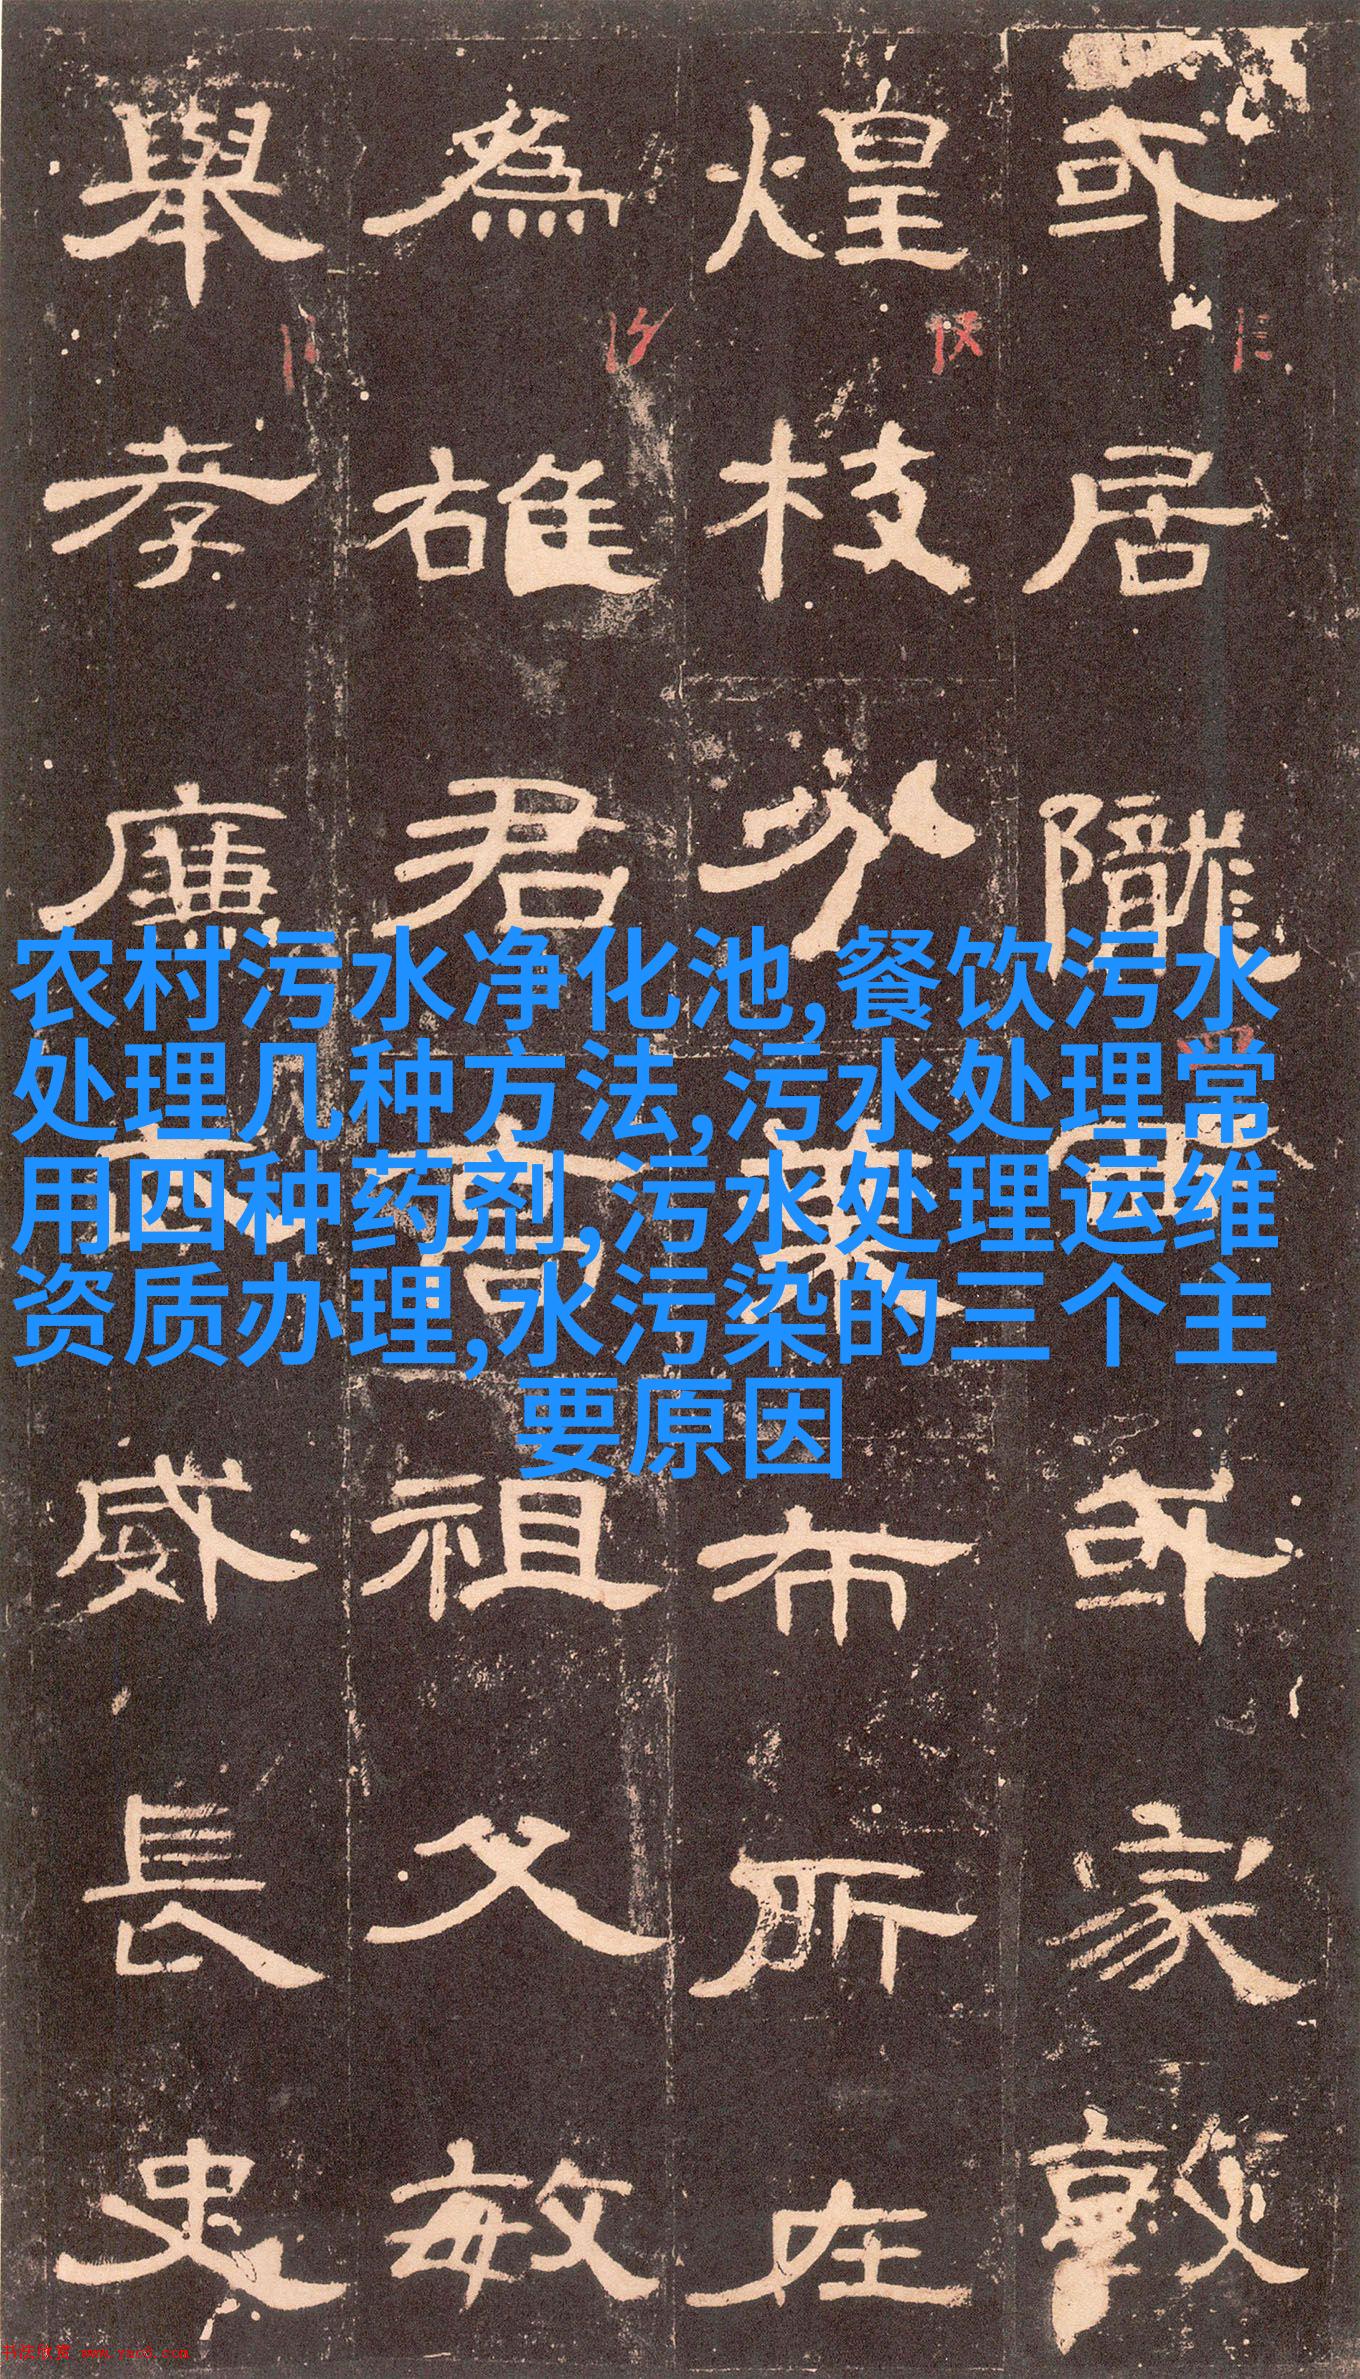 或居隴西或家敦
煌枝分葉布所在
為雄君高祖父敏
舉孝廉武威長史
农村污水净化池,餐饮污水
处理几种方法,污水处理常
用四种药剂,污水处理运维
资质办理,水污染的三个主
要原因
书法欣赏 www.yac8.com